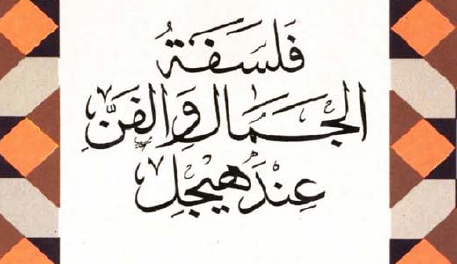 فَلسَفَةُ
الجَمَال وَالفَنِّ
عِندَ هيجِل